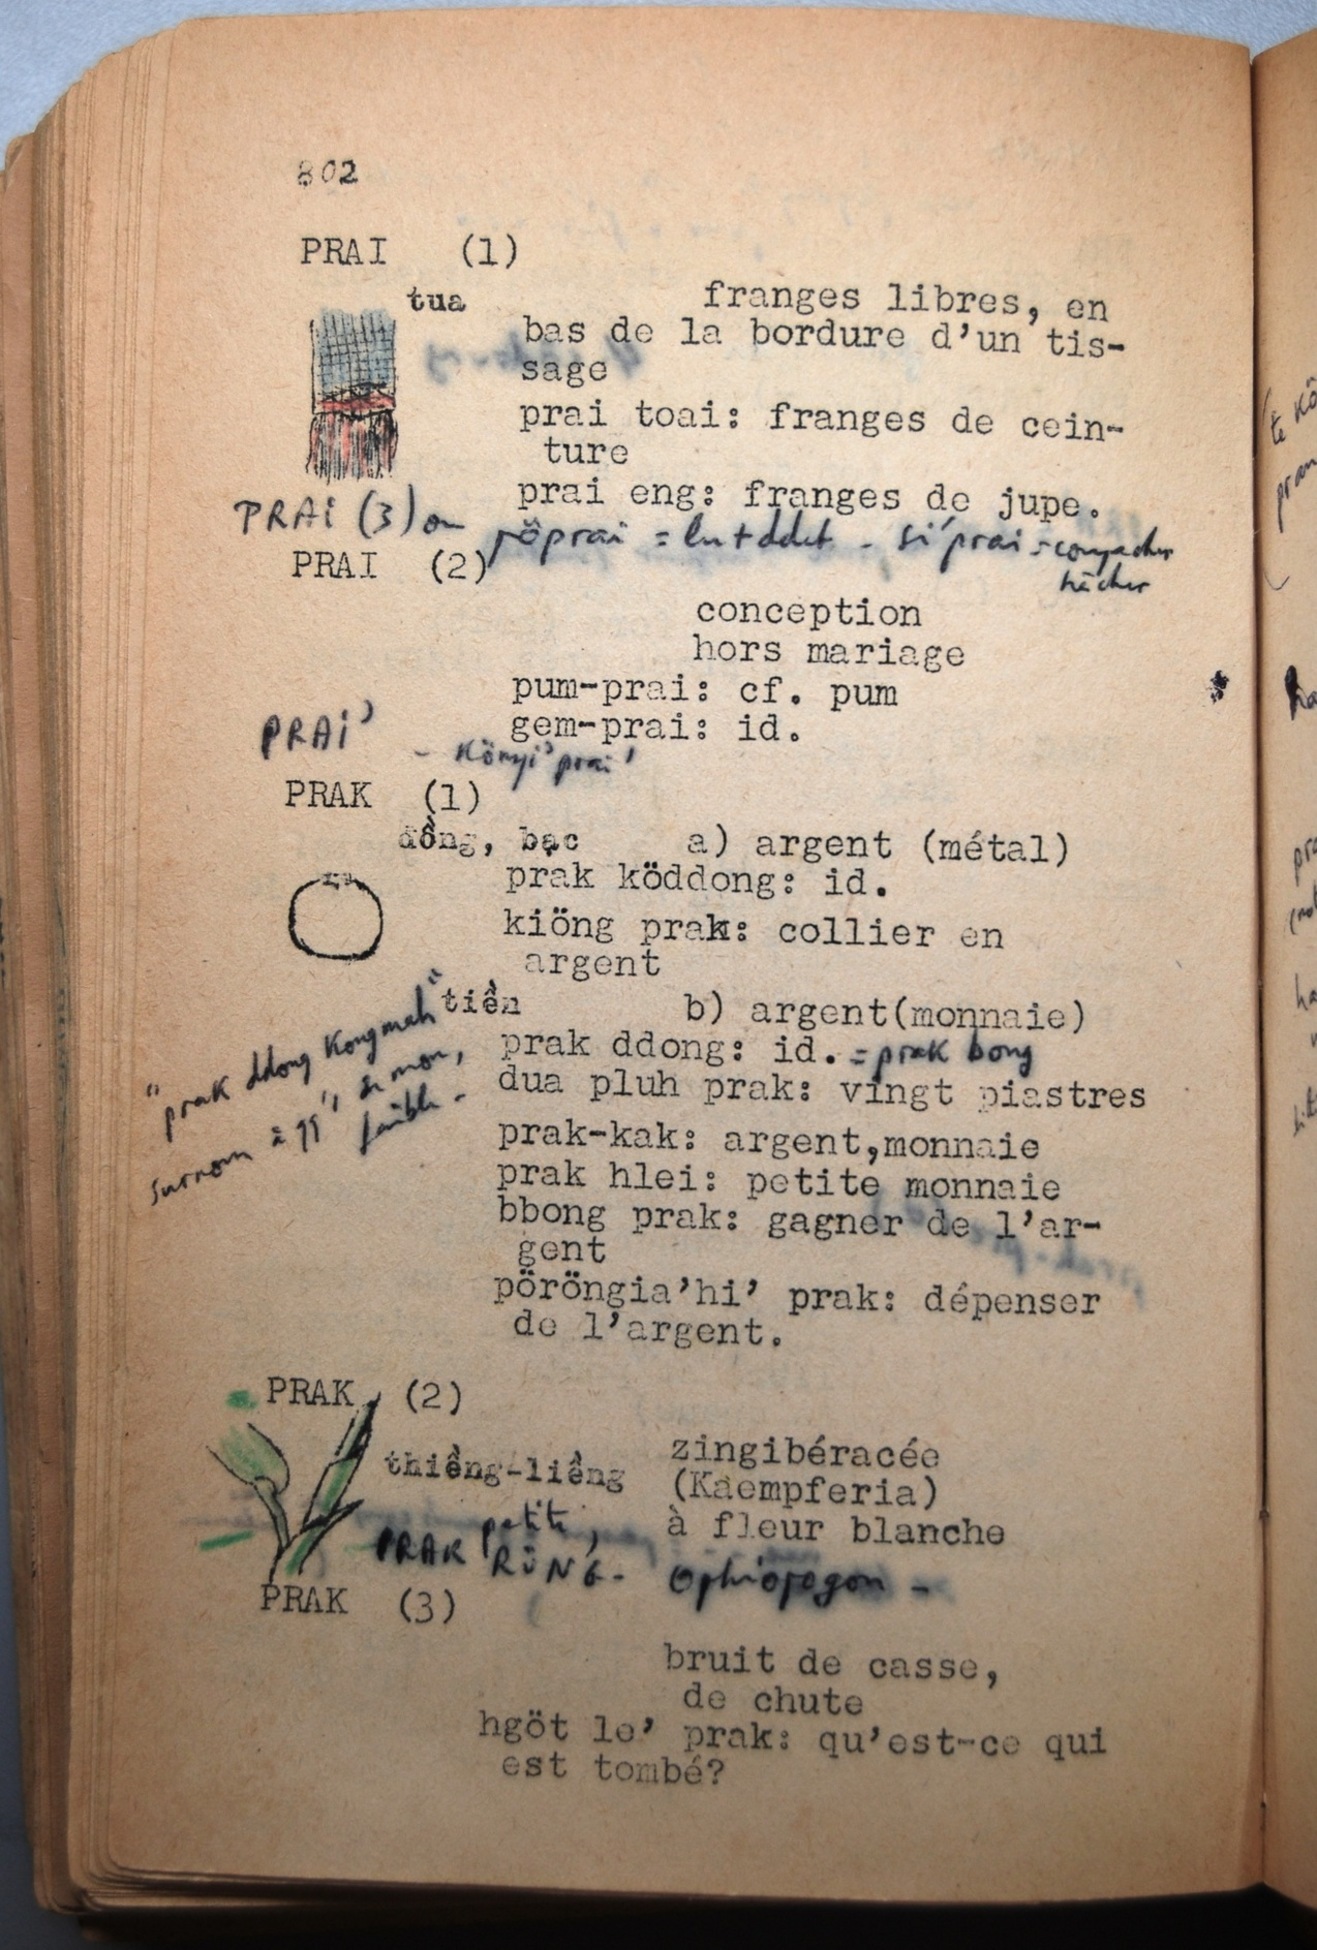 802
PRAI (1)
tua franges libres, en
bas de la bordure d'un tis-
sage
prai toai: franges de cein-
ture
prai eng: franges de jupe.
PRAI (3) ou pöprai = lut ddet - si'prai =
hâcher
PRAI (2)
conception
hors mariage
pum-prai: cf. pum
gem-prai: id.
PRAI' - Könyi' prai'
PRAK (1)
đồng, bạc a) argent (métal)
prak köddong: id.
kiöng prak: collier en
argent
tiền b) argent(monnaie)
prak ddong: id. = prak bong
dua pluh prak: vingt piastres
"prak ddong Kongmah"
surnom = si mon,
faible -
prak-kak: argent,monnaie
prak hlei: petite monnaie
bbong prak: gagner de l'ar-
gent
pöröngia'hi' prak: dépenser
de l'argent.
PRAK (2)
thiềng-liềng zingibéracée
(Kaempferia)
à fleur blanche
petite,
PRAK RÖNG - Ophiopogon -
PRAK (3)
bruit de casse,
de chute
hgöt le' prak: qu'est-ce qui
est tombé?